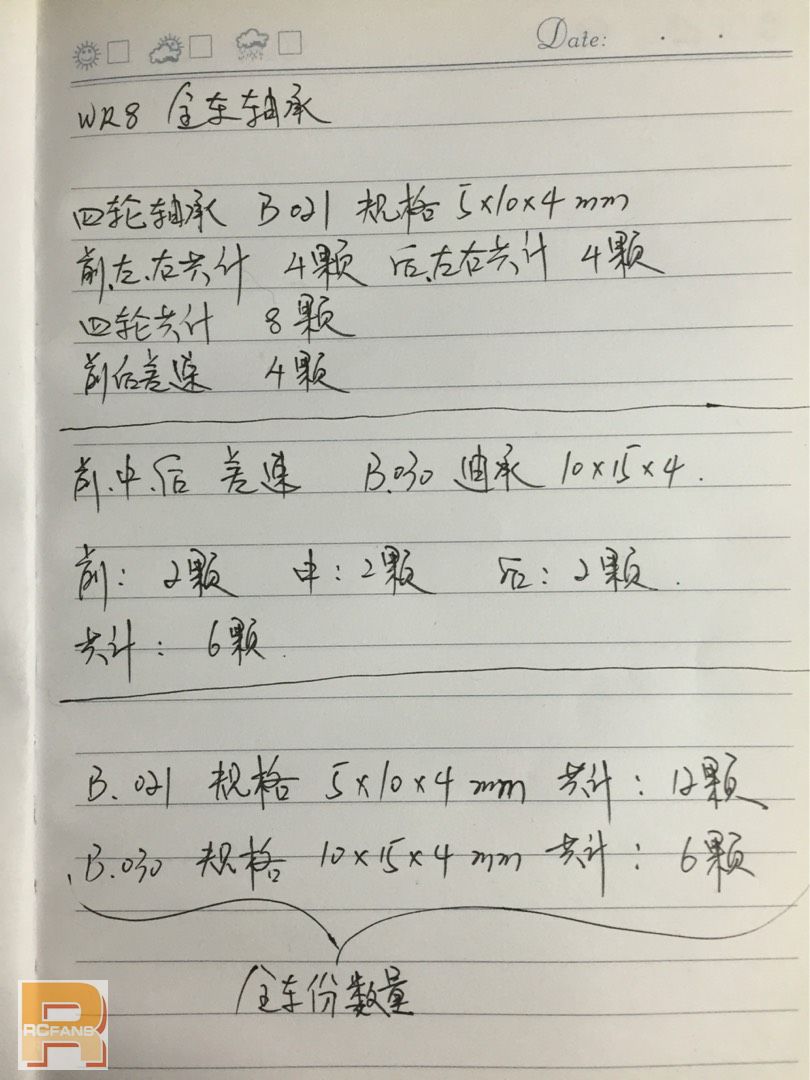 Date:
WR8 全车轴承
四轮轴承 B021 规格 5×10×4mm
前.左.右共计 4颗 后.左右共计 4颗
四轮共计 8颗
前后差速 4颗
前.中.后 差速 B.030 轴承 10×15×4.
前: 2颗 中: 2颗 后: 2颗.
共计: 6颗.
B.021 规格 5×10×4mm 共计: 12颗
B.030 规格 10×15×4mm 共计: 6颗
全车份数量
RCFANS